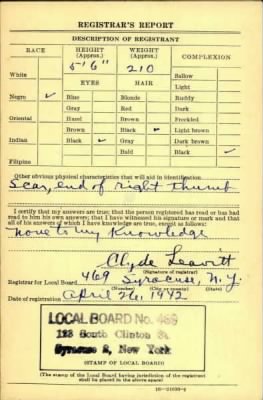 REGISTRAR'S REPORT
DESCRIPTION OF REGISTRANT
RACE HEIGHT (Approx.) WEIGHT (Approx.) COMPLEXION
5'6" 210
White Sallow
EYES HAIR Light
Negro ✓ Blue Blonde Ruddy
Gray Red Dark
Oriental Hazel Brown Freckled
Brown Black ✓ Light brown
Indian Black ✓ Gray Dark brown
Bald Black ✓
Filipino
Other obvious physical characteristics that will aid in identification
Scar, end of right thumb
I certify that my answers are true; that the person registered has read or has had
read to him his own answers; that I have witnessed his signature or mark and that
all of his answers of which I have knowledge are true, except as follows:
None to my knowledge
Clyde Leavitt
(Signature of registrar)
Registrar for Local Board 469 Syracuse, N.Y.
(Number) (City or county) (State)
Date of registration April 26, 1942
LOCAL BOARD No. 469
123 South Clinton St.
Syracuse 2, New York
(STAMP OF LOCAL BOARD)
(The stamp of the Local Board having jurisdiction of the registrant
shall be placed in the above space)